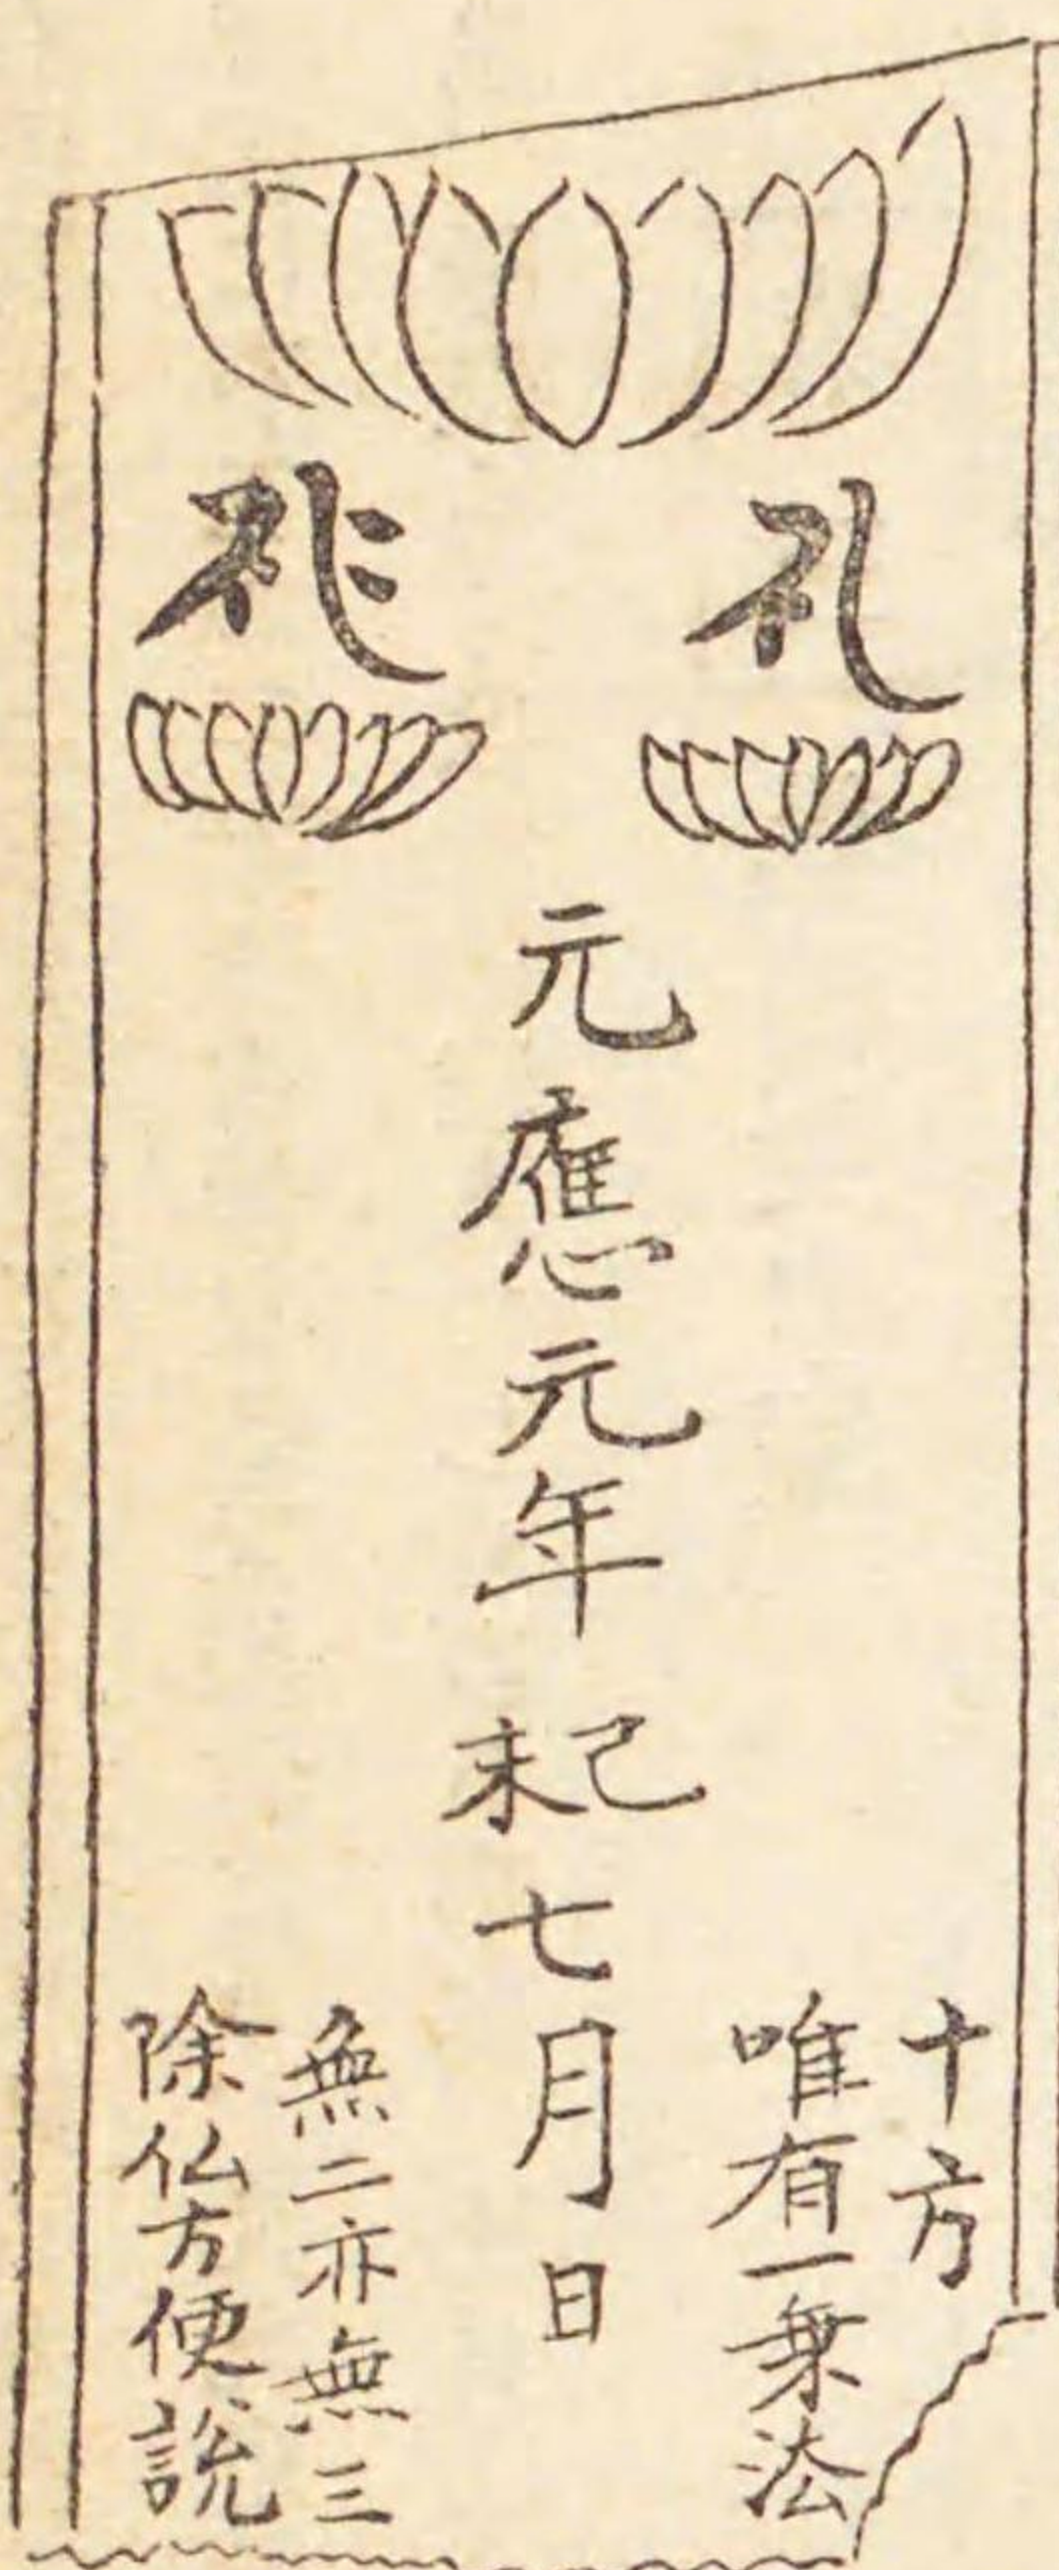 𑖭
𑖭𑖾
十方
唯有一乗法
元應元年己未七月日
無二亦無三
除仏方便説